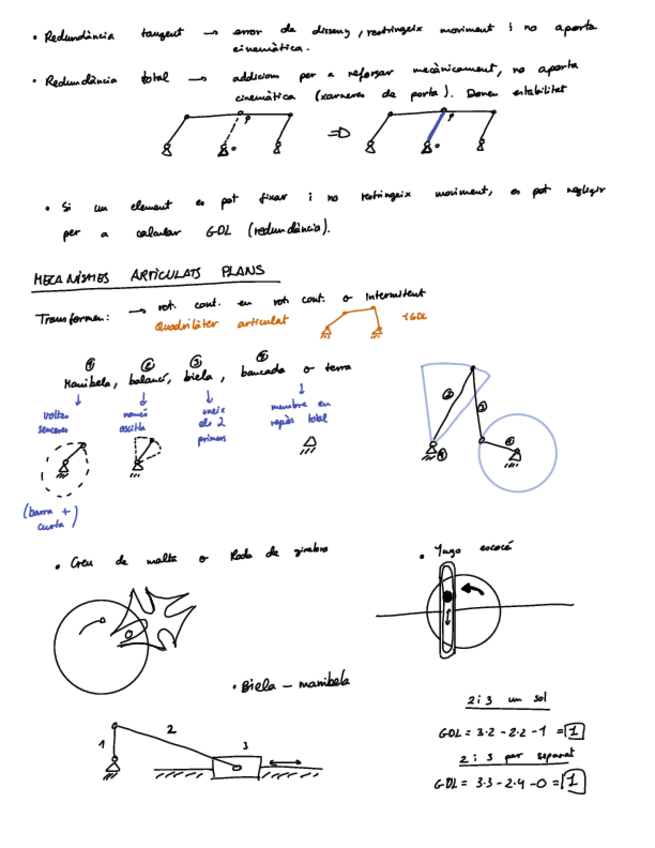 • Redundància tangent → error de disseny, restringeix moviment i no aporta
cinemàtica.
• Redundància total → addicions per a reforçar mecànicament, no aporta
cinemàtica (xarneres de porta). Donen estabilitat
• Si un element es pot fixar i no restringeix moviment, es pot negligir
per a calcular GDL (redundància).
MECANISMES ARTICULATS PLANS
Transformen: → rot. cont. en rot. cont. o Intermitent
Quadrilàter articulat
1GDL
① ② ③ ④
Manibela, balancí, biela, bancada o terra
volta
sencera
només
oscil·la
uneix
els 2
primers
membre en
repòs total
(barra +
curta)
② ③ ④
• Creu de malta o Roda de ginebra
• Yugo escocé
• Biela - manibela
1 2 3
2 i 3 un sol
GDL = 3·2 - 2·2 - 1 = 1
2 i 3 per separat
GDL = 3·3 - 2·4 - 0 = 1